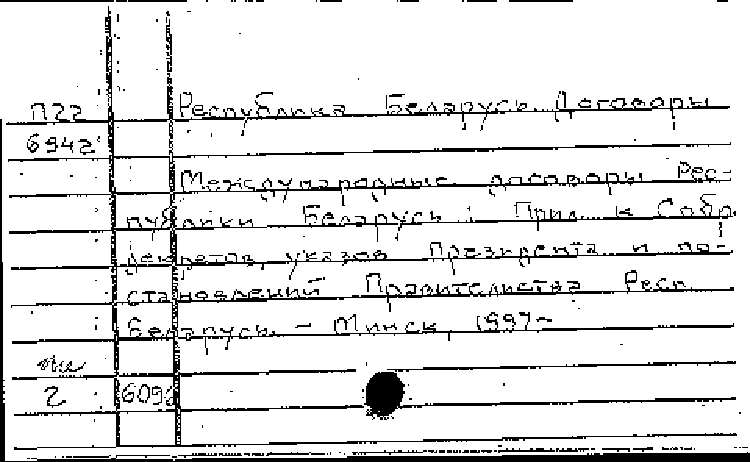 П22 Республика Беларусь. Договоры
6942
Международные договоры Рес-
публики Беларусь : Прил. к Собр.
декретов, указов Президента и по-
становлений Правительства Респ.
Беларусь. - Минск, 1997-
2 6096